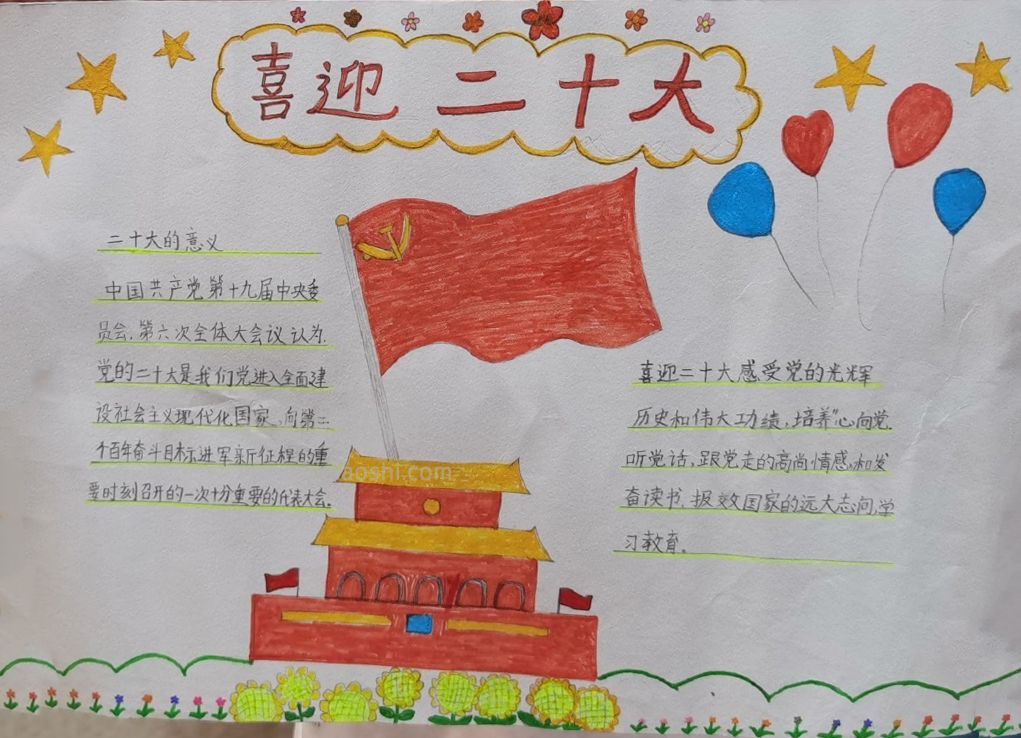 喜迎二十大
二十大的意义
中国共产党第十九届中央委
员会，第六次全体大会议认为，
党的二十大是我们党进入全面建
设社会主义现代化国家，向第二
个百年奋斗目标进军新征程的重
要时刻召开的一次十分重要的代表大会。
喜迎二十大感受党的光辉
历史和伟大功绩，培养“心向党
听党话，跟党走的高尚情感，和发
奋读书，报效国家的远大志向，学
习教育。
aoshi.com